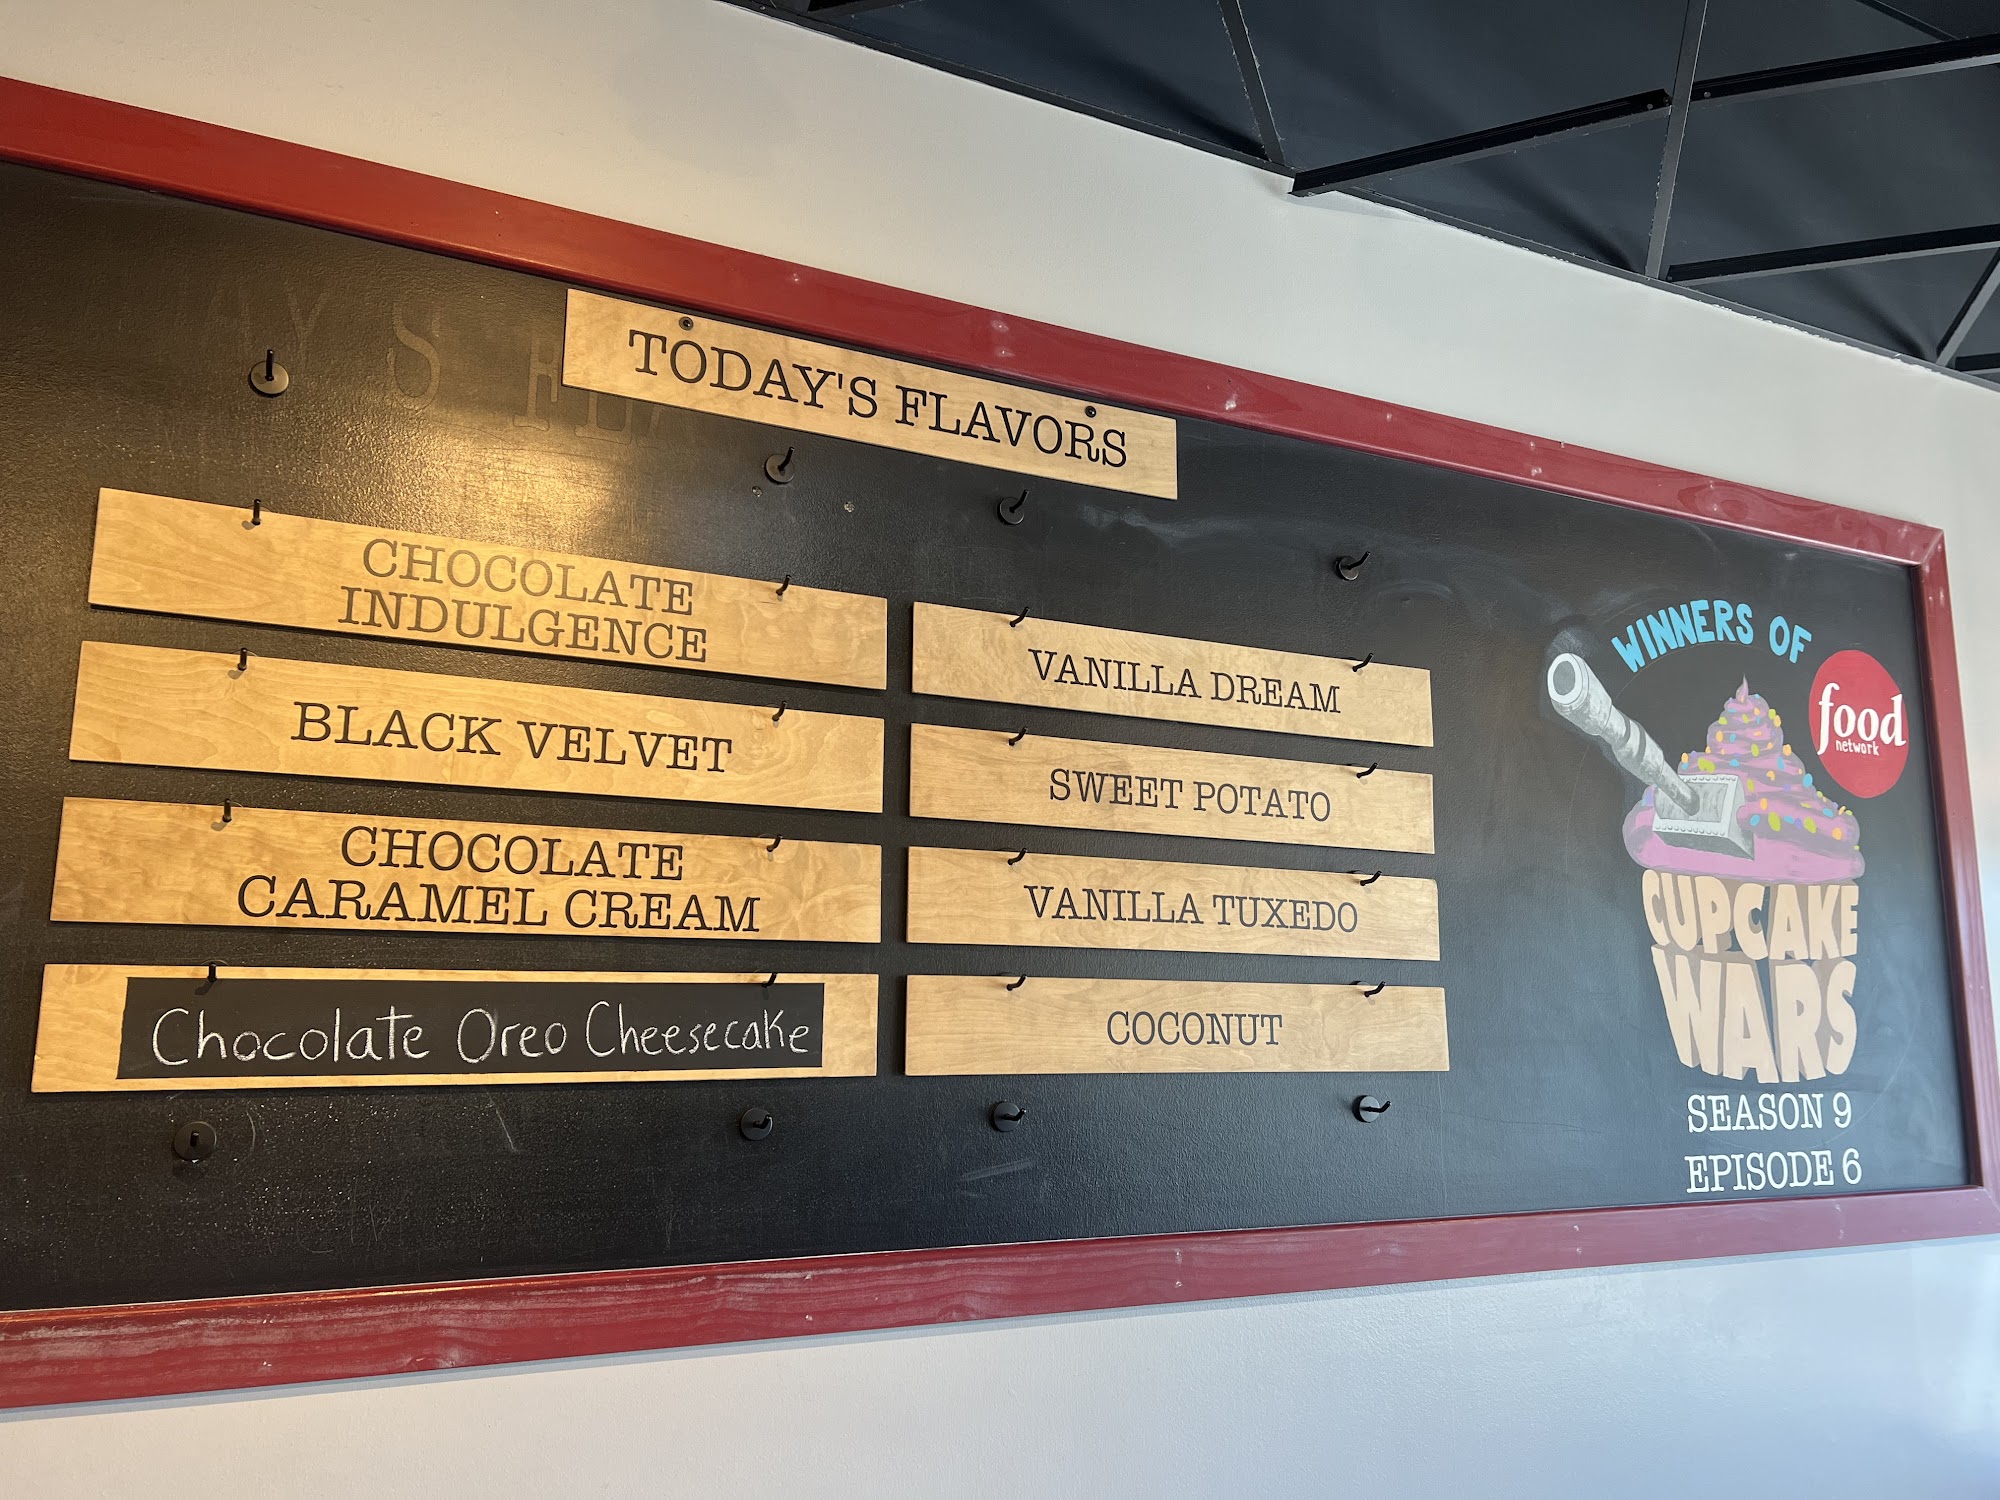 TODAY'S FLAVORS
CHOCOLATE
INDULGENCE
BLACK VELVET
CHOCOLATE
CARAMEL CREAM
Chocolate Oreo Cheesecake
VANILLA DREAM
SWEET POTATO
VANILLA TUXEDO
COCONUT
WINNERS OF
food
network
CUPCAKE
WARS
SEASON 9
EPISODE 6